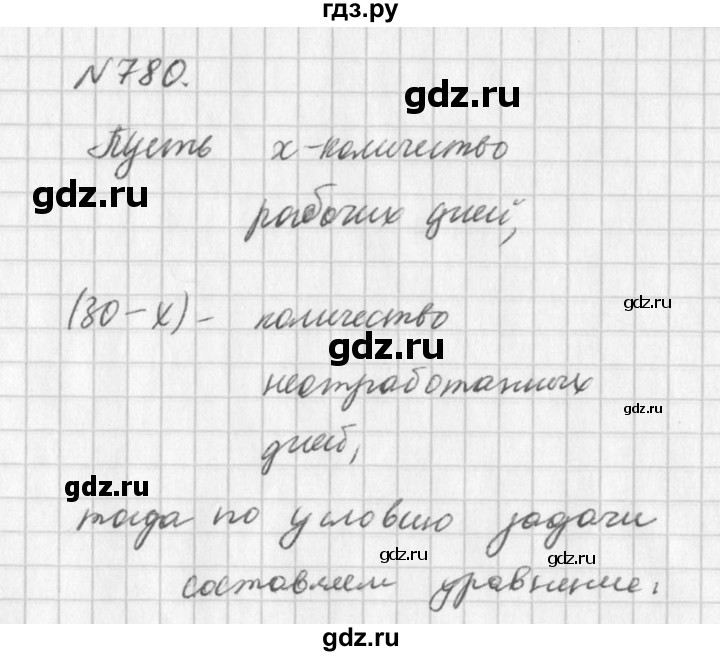 гдз.ру
№780.
gdz.ru
Пусть х-количество
gdz.ru
рабочих дней,
(30-х)- количество
gdz.ru
gdz.ru
неотработанных
gdz.ru
дней,
gdz.ru
тогда по условию задачи
gdz.ru
gdz.ru
составляем уравнение:
gdz.ru